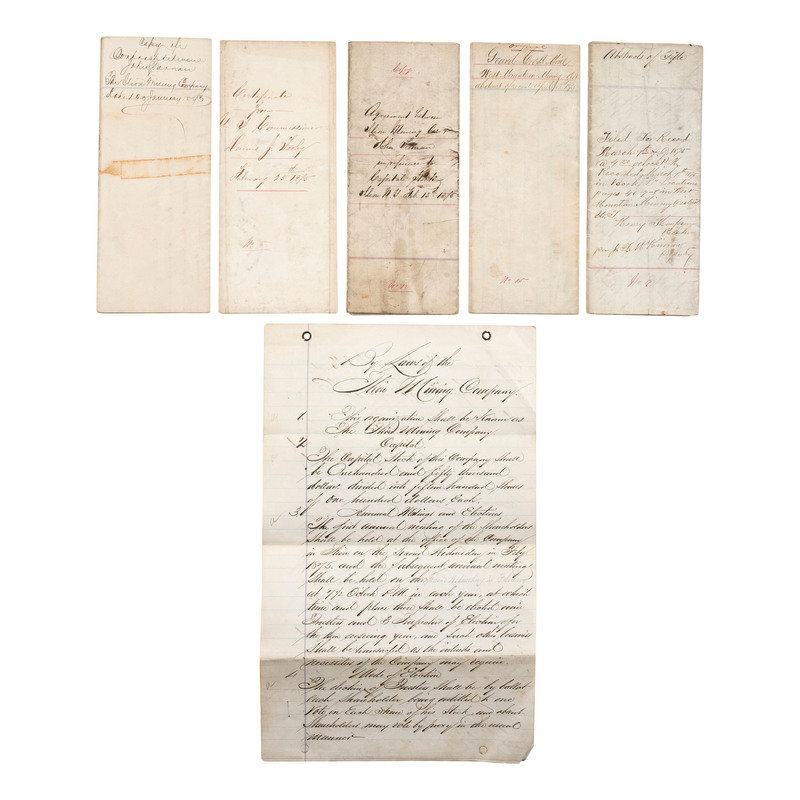 Copy of
John
The Ilion Mining Company
January
Certificate
from
U S Commissioner
February 25th 1875
No
Copy
Agreement between
Ilion Mining Co &
John
in reference to
Capital Stock
Ilion N.Y. Feb. 12th 1875
Grand
West Mountain Mining
abstract of record
No 10
Abstracts of Title
Filed for Record
March 9th 1875
at 9 oclock A.M.
Recorded March 9th 1875
in Book of Locations
page in West
Mountain Mining District
U.T.
Henry
Recorder
per
Deputy
No 2
By Laws of the
Ilion Mining Company.
1. This organization Shall be Known as
The Ilion Mining Company
2 Capital
The Capital Stock of this Company Shall
be One hundred and fifty thousand
dollars divided into fifteen hundred Shares
of One hundred dollars Each.
3 Annual Meetings and Elections
The first annual meeting of the Shareholders
Shall be held at the office of the Company
in Ilion on the Second Wednesday in Feby
1875, and the Subsequent annual meetings
Shall be held on the
at 7 1/2 Oclock P.M. in each year, at which
time and place there Shall be elected nine
Trustees and 3 Inspectors of Election for
the year ensuing year, and Such other business
Shall be transacted as the interests and
necessities of the Company may require.
4 Mode of Election
The election of Trustees Shall be by ballot
each Shareholder being entitled to one
Vote, on Each Share of his Stock and absent
Shareholders may vote by proxy in the usual
manner